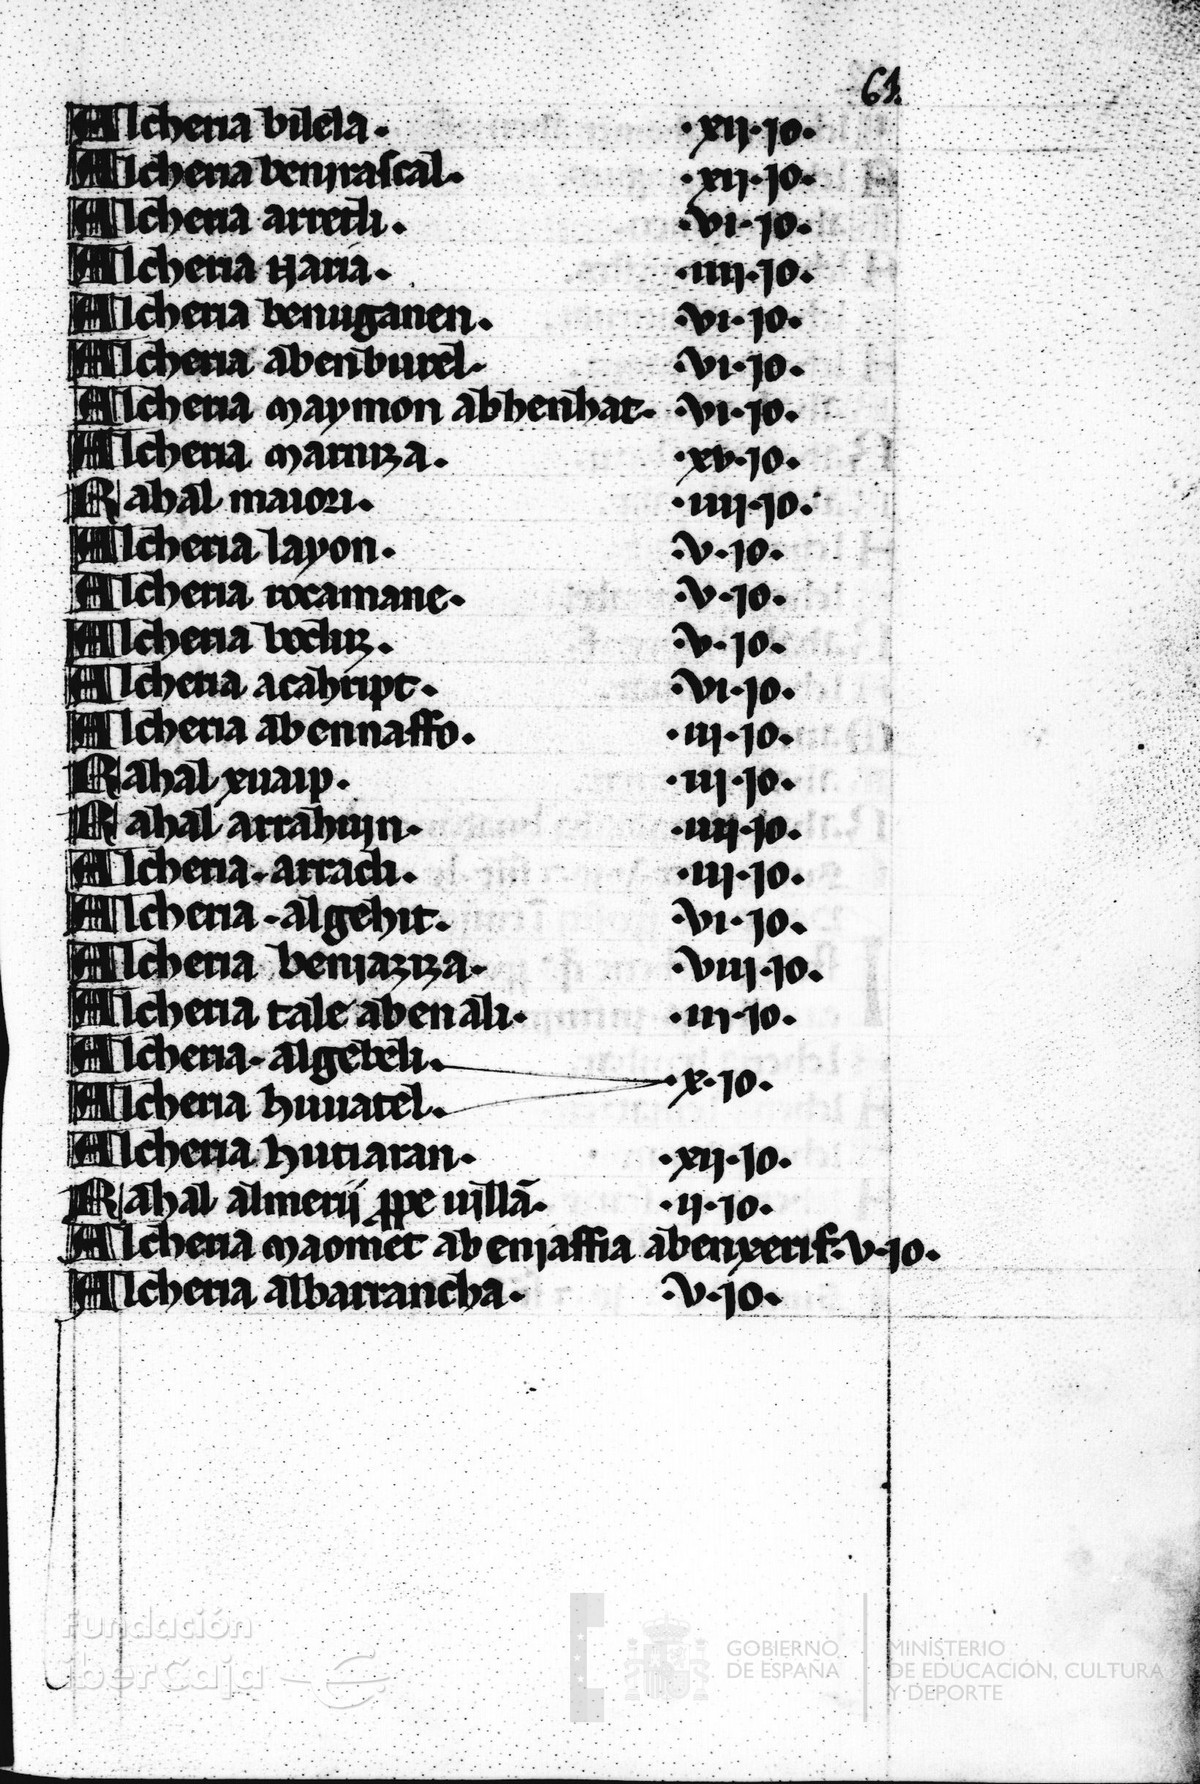 61.
Alcheria bilela. .xij.jo.
Alcheria benirascal. .xij.jo.
Alcheria arrecli. .vi.jo.
Alcheria .iiij.jo.
Alcheria benuganen. .vi.jo.
Alcheria abenburel. .vi.jo.
Alcheria maymon abhenhat. .vi.jo.
Alcheria .xv.jo.
Rahal maiori. .iiij.jo.
Alcheria layon. .v.jo.
Alcheria rocamane. .v.jo.
Alcheria .v.jo.
Alcheria acahript. .vi.jo.
Alcheria abennaffo. .iij.jo.
Rahal xuaip. .iij.jo.
Rahal arrahuijn. .iiij.jo.
Alcheria. arrach. .iij.jo.
Alcheria. algehit. .vi.jo.
Alcheria beniazza. .viij.jo.
Alcheria tale abenali. .iij.jo.
Alcheria. algebeli.
.x.jo.
Alcheria huuatel.
Alcheria hutiaran. .xij.jo.
Rahal almerij ppe uillā. .ij.jo.
Alcheria maomet abenjaffia abenxerif. .v.jo.
Alcheria albarrancha. .v.jo.
Fundación
iberCaja
GOBIERNO
DE ESPAÑA
MINISTERIO
DE EDUCACIÓN, CULTURA
Y DEPORTE